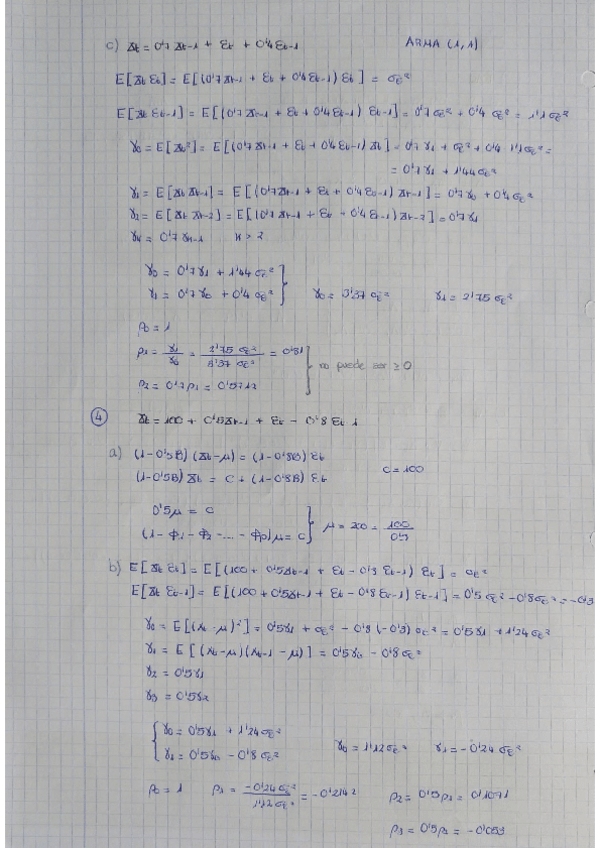 c) Xt = 0'7 Xt-1 + Et + 0'4 Et-1 ARMA (1,1)
E[Xt Et] = E[(0'7 Xt-1 + Et + 0'4 Et-1) Et] = σE²
E[Xt Et-1] = E[(0'7 Xt-1 + Et + 0'4 Et-1) Et-1] = 0'7 σE² + 0'4 σE² = 1'1 σE²
γ0 = E[Xt²] = E[(0'7 Xt-1 + Et + 0'4 Et-1) Xt] = 0'7 γ1 + σE² + 0'4 1'1 σE² =
= 0'7 γ1 + 1'44 σE²
γ1 = E[Xt Xt-1] = E[(0'7 Xt-1 + Et + 0'4 Et-1) Xt-1] = 0'7 γ0 + 0'4 σE²
γ2 = E[Xt Xt-2] = E[(0'7 Xt-1 + Et + 0'4 Et-1) Xt-2] = 0'7 γ1
γk = 0'7 γk-1 k > 2
γ0 = 0'7 γ1 + 1'44 σE²
γ1 = 0'7 γ0 + 0'4 σE² } γ0 = 3'37 σE² γ1 = 2'75 σE²
ρ0 = 1
ρ1 = γ1/γ0 = 2'75 σE² / 3'37 σE² = 0'81
no puede ser ≥ 0
ρ2 = 0'7 ρ1 = 0'5712
④ Xt = 100 + 0'5 Xt-1 + Et - 0'8 Et-1
a) (1 - 0'5B) (Xt - μ) = (1 - 0'8B) Et
(1 - 0'5B) Xt = C + (1 - 0'8B) Et C = 100
0'5 μ = C
(1 - Φ1 - Φ2 - ... - Φp) μ = C } μ = 200 = 100/0'5
b) E[Xt Et] = E[(100 + 0'5 Xt-1 + Et - 0'8 Et-1) Et] = σE²
E[Xt Et-1] = E[(100 + 0'5 Xt-1 + Et - 0'8 Et-1) Et-1] = 0'5 σE² - 0'8 σE² = -0'3
γ0 = E[(Xt - μ)²] = 0'5 γ1 + σE² - 0'8 (-0'3) σE² = 0'5 γ1 + 1'24 σE²
γ1 = E[(Xt - μ)(Xt-1 - μ)] = 0'5 γ0 - 0'8 σE²
γ2 = 0'5 γ1
γ3 = 0'5 γ2
{ γ0 = 0'5 γ1 + 1'24 σE²
γ1 = 0'5 γ0 - 0'8 σE² γ0 = 1'12 σE² γ1 = -0'24 σE²
ρ0 = 1 ρ1 = -0'24 σE² / 1'12 σE² = -0'2142 ρ2 = 0'5 ρ1 = 0'1071
ρ3 = 0'5 ρ2 = -0'053